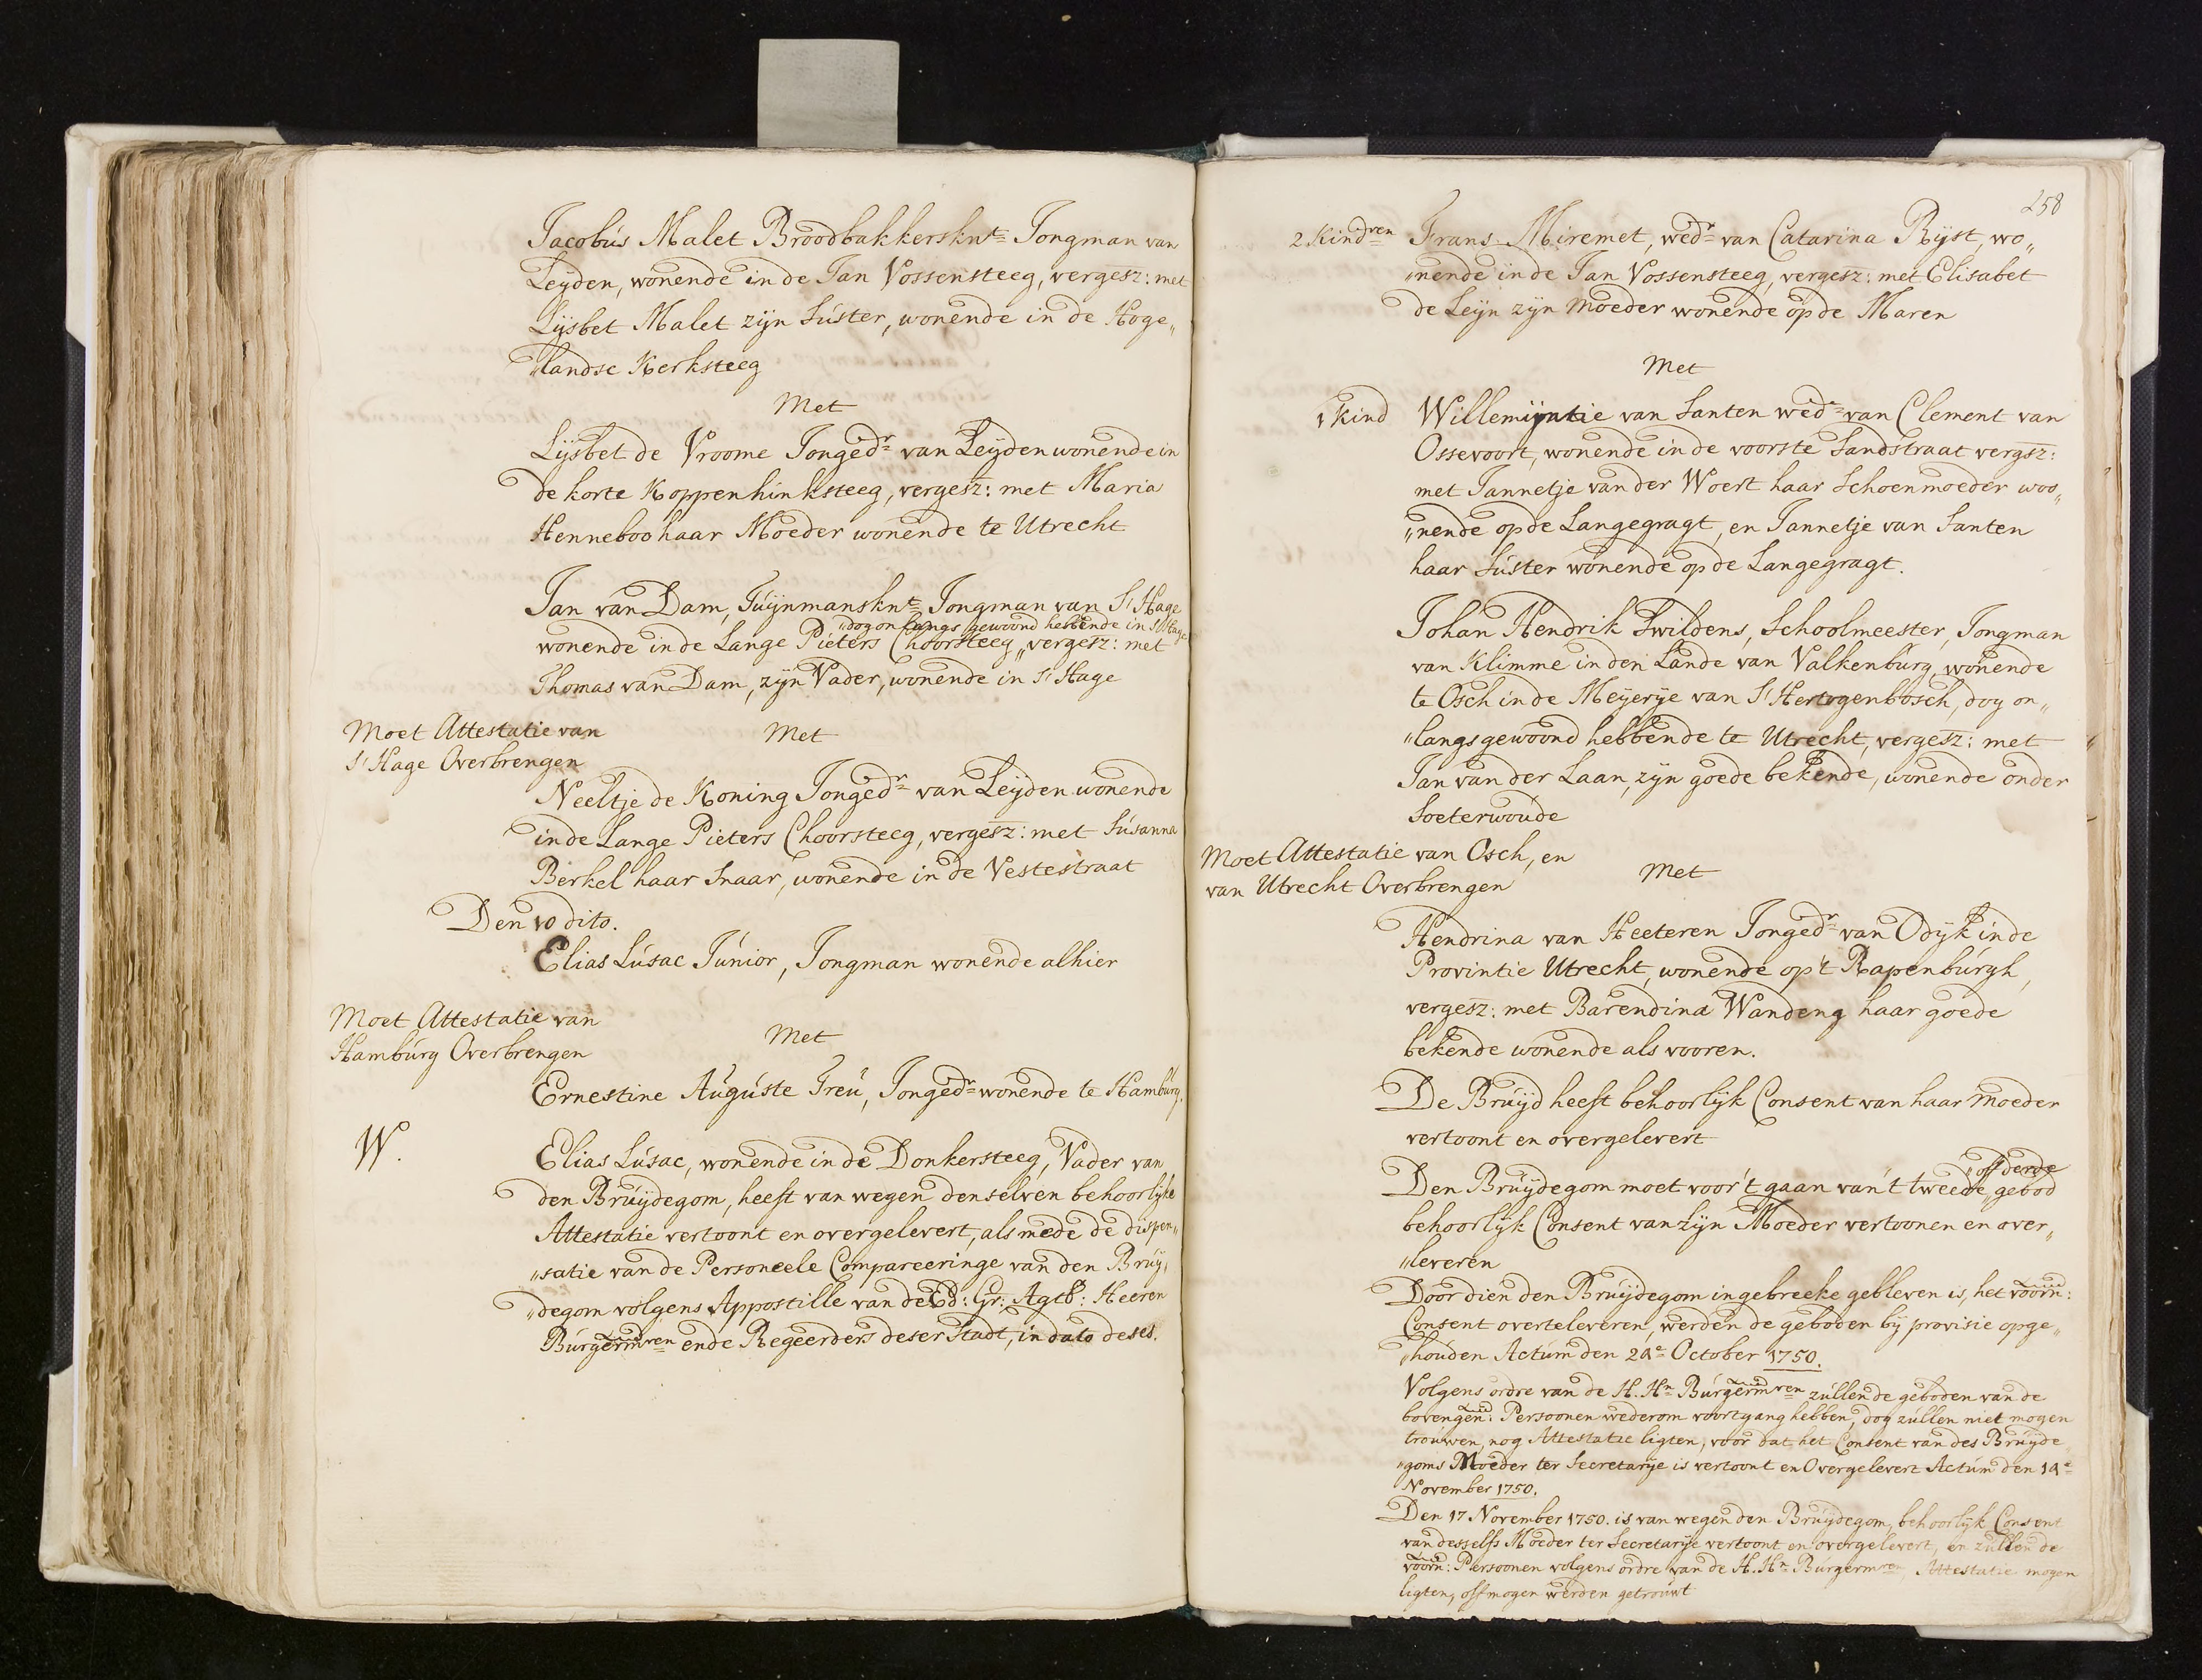 Jacobus Malet Broodbakkersknt Jongman van
Leyden, wonende in de Jan Vossensteeg, vergesz: met
Lijsbet Malet zijn Suster, wonende in de Hoge„
„landse Kerksteeg
Met
Lijsbet de Vroome Jongedr van Leyden wonende in
de korte Koppenhinksteeg, vergesz: met Maria
Henneboo haar Moeder wonende te Utrecht
Jan van Dam, Tuijnmansknt Jongman van S'Hage
„dog onlangs gewoond hebbende in S'Hage
wonende in de Lange Pieters Choorsteeg „ vergesz: met
Thomas van Dam, zijn Vader, wonende in S'Hage
Moet Attestatie van
S'Hage Overbrengen
Met
Neeltje de Koning Jongedr van Leyden wonende
in de Lange Pieters Choorsteeg, vergesz: met Susanna
Berkel haar Snaar, wonende in de Vestestraat
Den 10 dito.
Elias Lusac Junior, Jongman wonende alhier
Moet Attestatie van
Hamburg Overbrengen
Met
Ernestine Auguste Treu, Jongedr wonende te Hamburg.
W.
Elias Lusac, wonende in de Donkersteeg, Vader van
den Bruijdegom, heeft van wegen denselven behoorlijke
Attestatie vertoont en overgelevert, als mede de dispen„
„satie van de Personeele Compareeringe van den Bruij„
„degom volgens Appostille van de Ed: Gr: Agtb: Heeren
Burgermren ende Regeerders deser Stadt, in dato deses.
258
2 Kindren
Frans Miremet, wedr van Catarina Rijst, wo„
„nende in de Jan Vossensteeg, vergesz: met Elisabet
de Leijn zijn Moeder wonende op de Maren
Met
1 Kind
Willemijntie van Santen wedr van Clement van
Ossevoort, wonende in de voorste Sandstraat vergsz:
met Jannetje van der Woert haar Schoenmoeder woo„
„nende op de Langegragt, en Jannetje van Santen
haar Suster wonende op de Langegragt.
Johan Hendrik Swildens, Schoolmeester, Jongman
van Klimme in den Lande van Valkenburg, wonende
te Osch in de Meijerije van S'Hertogenbosch, dog on„
„langs gewoond hebbende te Utrecht, vergesz: met
Jan van der Laan, zijn goede bekende, wonende onder
Soeterwoude
Moet Attestatie van Osch, en
van Utrecht Overbrengen
Met
Hendrina van Heeteren Jongedr van Odijk in de
Provintie Utrecht, wonende op 't Rapenburgh,
vergesz: met Barendina Wandeng haar goede
bekende wonende als vooren.
De Bruijd heeft behoorlijk Consent van haar Moeder
vertoont en overgelevert
„off derde
Den Bruijdegom moet voor 't gaan van 't tweede „ gebod
behoorlijk Consent van zijn Moeder vertoonen en over„
„leveren
Door dien den Bruijdegom in gebreeke gebleven is, het voorn:
Consent over te leveren, werden de geboden bij provisie opge„
„houden Actum den 24e October 1750.
Volgens ordre van de H. Hn Burgermren zullen de geboden van de
bovengen: Persoonen wederom voortgang hebben, dog zullen niet mogen
trouwen, nog Attestatie ligten, voor dat het Consent van des Bruijde
„goms Moeder ter Secretarije is vertoont en Overgelevert Actum den 14e
November 1750.
Den 17 November 1750. is van wegen den Bruijdegom, behoorlijk Consent
van desselfs Moeder ter Secretarije vertoont en overgelevert, en zullen de
voorn: Persoonen volgens ordre van de H. Hn Burgermren Attestatie mogen
ligten, off mogen werden getrouwt